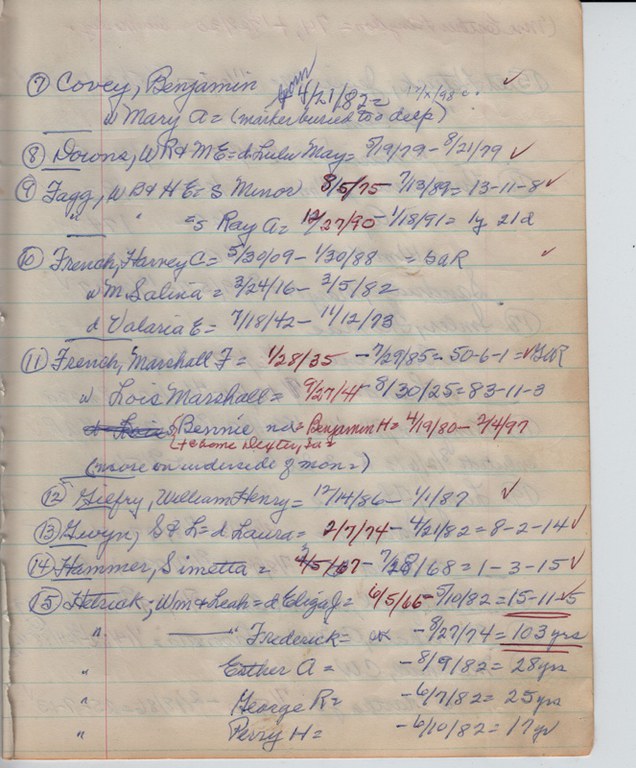 ⑦ Covey, Benjamin born 4/21/82= 
w Mary A = (marker buried too deep)
⑧ Downs, WR & ME = d Lulu May = 5/19/79 - 8/21/79 ✓
⑨ Fagg, W B & H E = S Minor 8/5/75 - 7/13/89 = 13-11-8 ✓
" " = s Ray A = 12/27/90 - 1/18/91 = 1y 21d
⑩ French, Harvey C = 5/30/09 - 1/30/88 = GaR ✓
w M. Salina = 3/24/16 - 3/5/82
d Valaria E = 7/18/42 - 11/12/73
⑪ French, Marshall F = 1/28/35 - 7/29/85 = 50-6-1 = ✓ GaR
w Lois Marshall = 9/27/41 - 8/30/25 = 83-11-3
s Bennie no = Benjamin H = 4/19/80 - 2/4/97
(to home Dexter, Ia =
(more on underside of mon =)
⑫ Gilfry, William Henry = 12/14/86 - 1/1/87 ✓
⑬ Gwyn, S & L = d Laura = 2/7/74 - 4/21/82 = 8-2-14 ✓
⑭ Hammer, Simetta = 4/5/67 - 7/28/68 = 1-3-15 ✓
⑮ Hetrick, Wm & Leah = d Eliza J = 6/5/66 - 5/10/82 = 15-11-5 ✓
" — " Frederick = ok - 8/27/74 = 103 yrs
" Esther A = - 8/9/82 = 28 yrs
" George R = - 6/7/82 = 25 yrs
" Perry H = - 6/10/82 = 17 yr